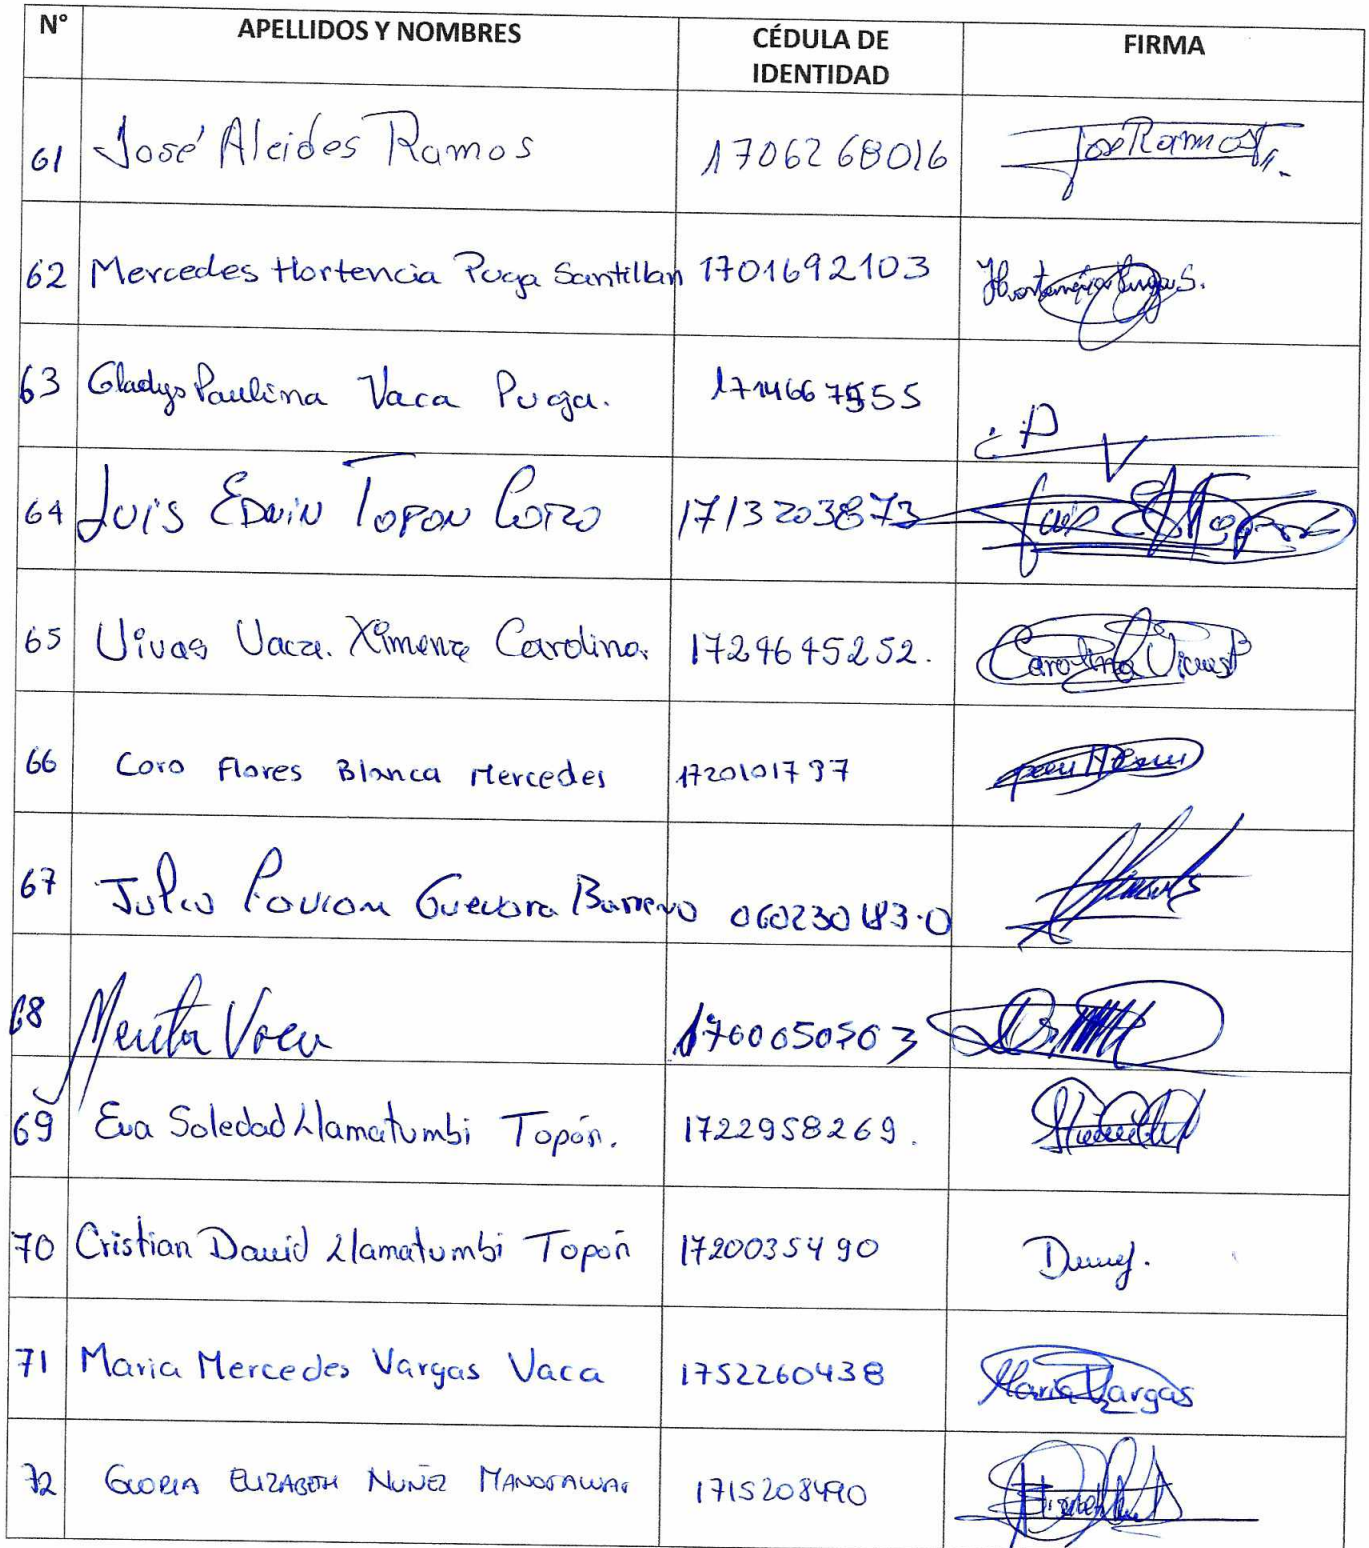 N° APELLIDOS Y NOMBRES CÉDULA DE IDENTIDAD FIRMA
61 José Alcides Ramos 1706268016 José Ramos
62 Mercedes Hortencia Puga Santillan 1701692103 Hortencia Puga S.
63 Gladys Paulina Vaca Puga.
64 Luis Edwin Topon Coro 1713203873
65 Vivas Vaca. Ximena Carolina. Carolina Vivas
66 Coro Flores Blanca Mercedes 1720101797
67 Julio Guevara Barreno
68 Vaca
69 Eva Soledad Llamatumbi Topón. 1722958269.
70 Cristian David Llamatumbi Topón 1720035490
71 Maria Mercedes Vargas Vaca 1752260438 Maria Vargas
72 GLORIA ELIZABETH NUÑEZ 1715208490